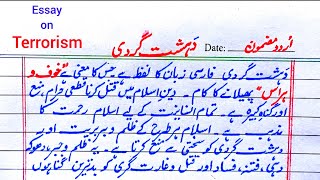 Essay
on
Terrorism
اُردو مضمون
دہشت گردی
Date:
دہشت گردی فارسی زبان کا لفظ ہے جس کا معنی ہے "خوف و
ہراس" پھیلانے کا کام ۔ دین اسلام میں قتل کرنا قطعی حرام، منع
اور گناہ کبیرہ ہے ۔ تمام انسانیت کے لیے اسلام رحمت کا
مذہب ہے ۔ اسلام ہر طرح کے ظلم و بربریت اور
دہشت گردی کو سختی سے منع کرتا ہے ۔ ظلم و جبر، دھوکہ
دہی، فتنہ، فساد اور قتل و غارت گری کو بدترین